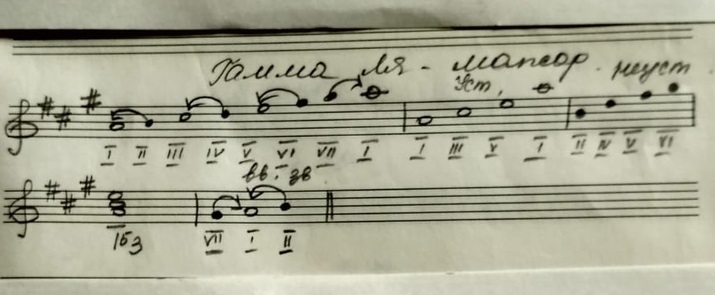 Гамма Ля - мажор.
Уст. неуст.
I II III IV V VI VII I I III V I II IV V VI
вв. зв.
I53 VII I II